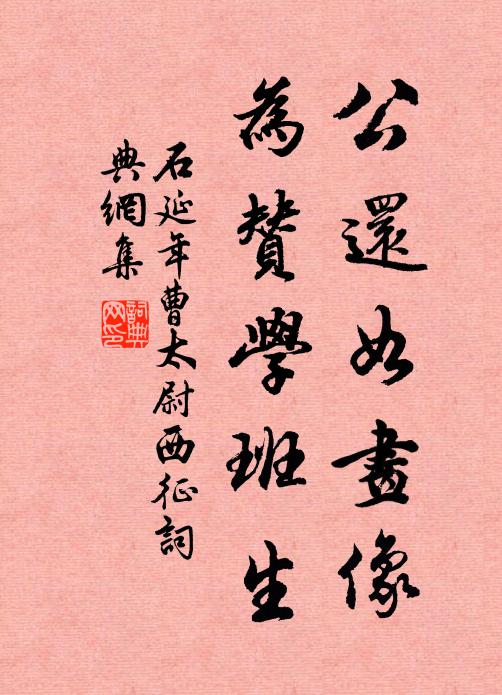 公還如畫像
為贊學班生
石延年曹太尉西征詞
典網集
詞典
网印